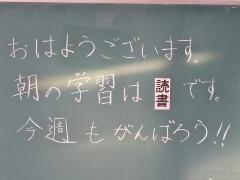 おはようございます。
朝の学習は 読書 です。
今週もがんばろう!!